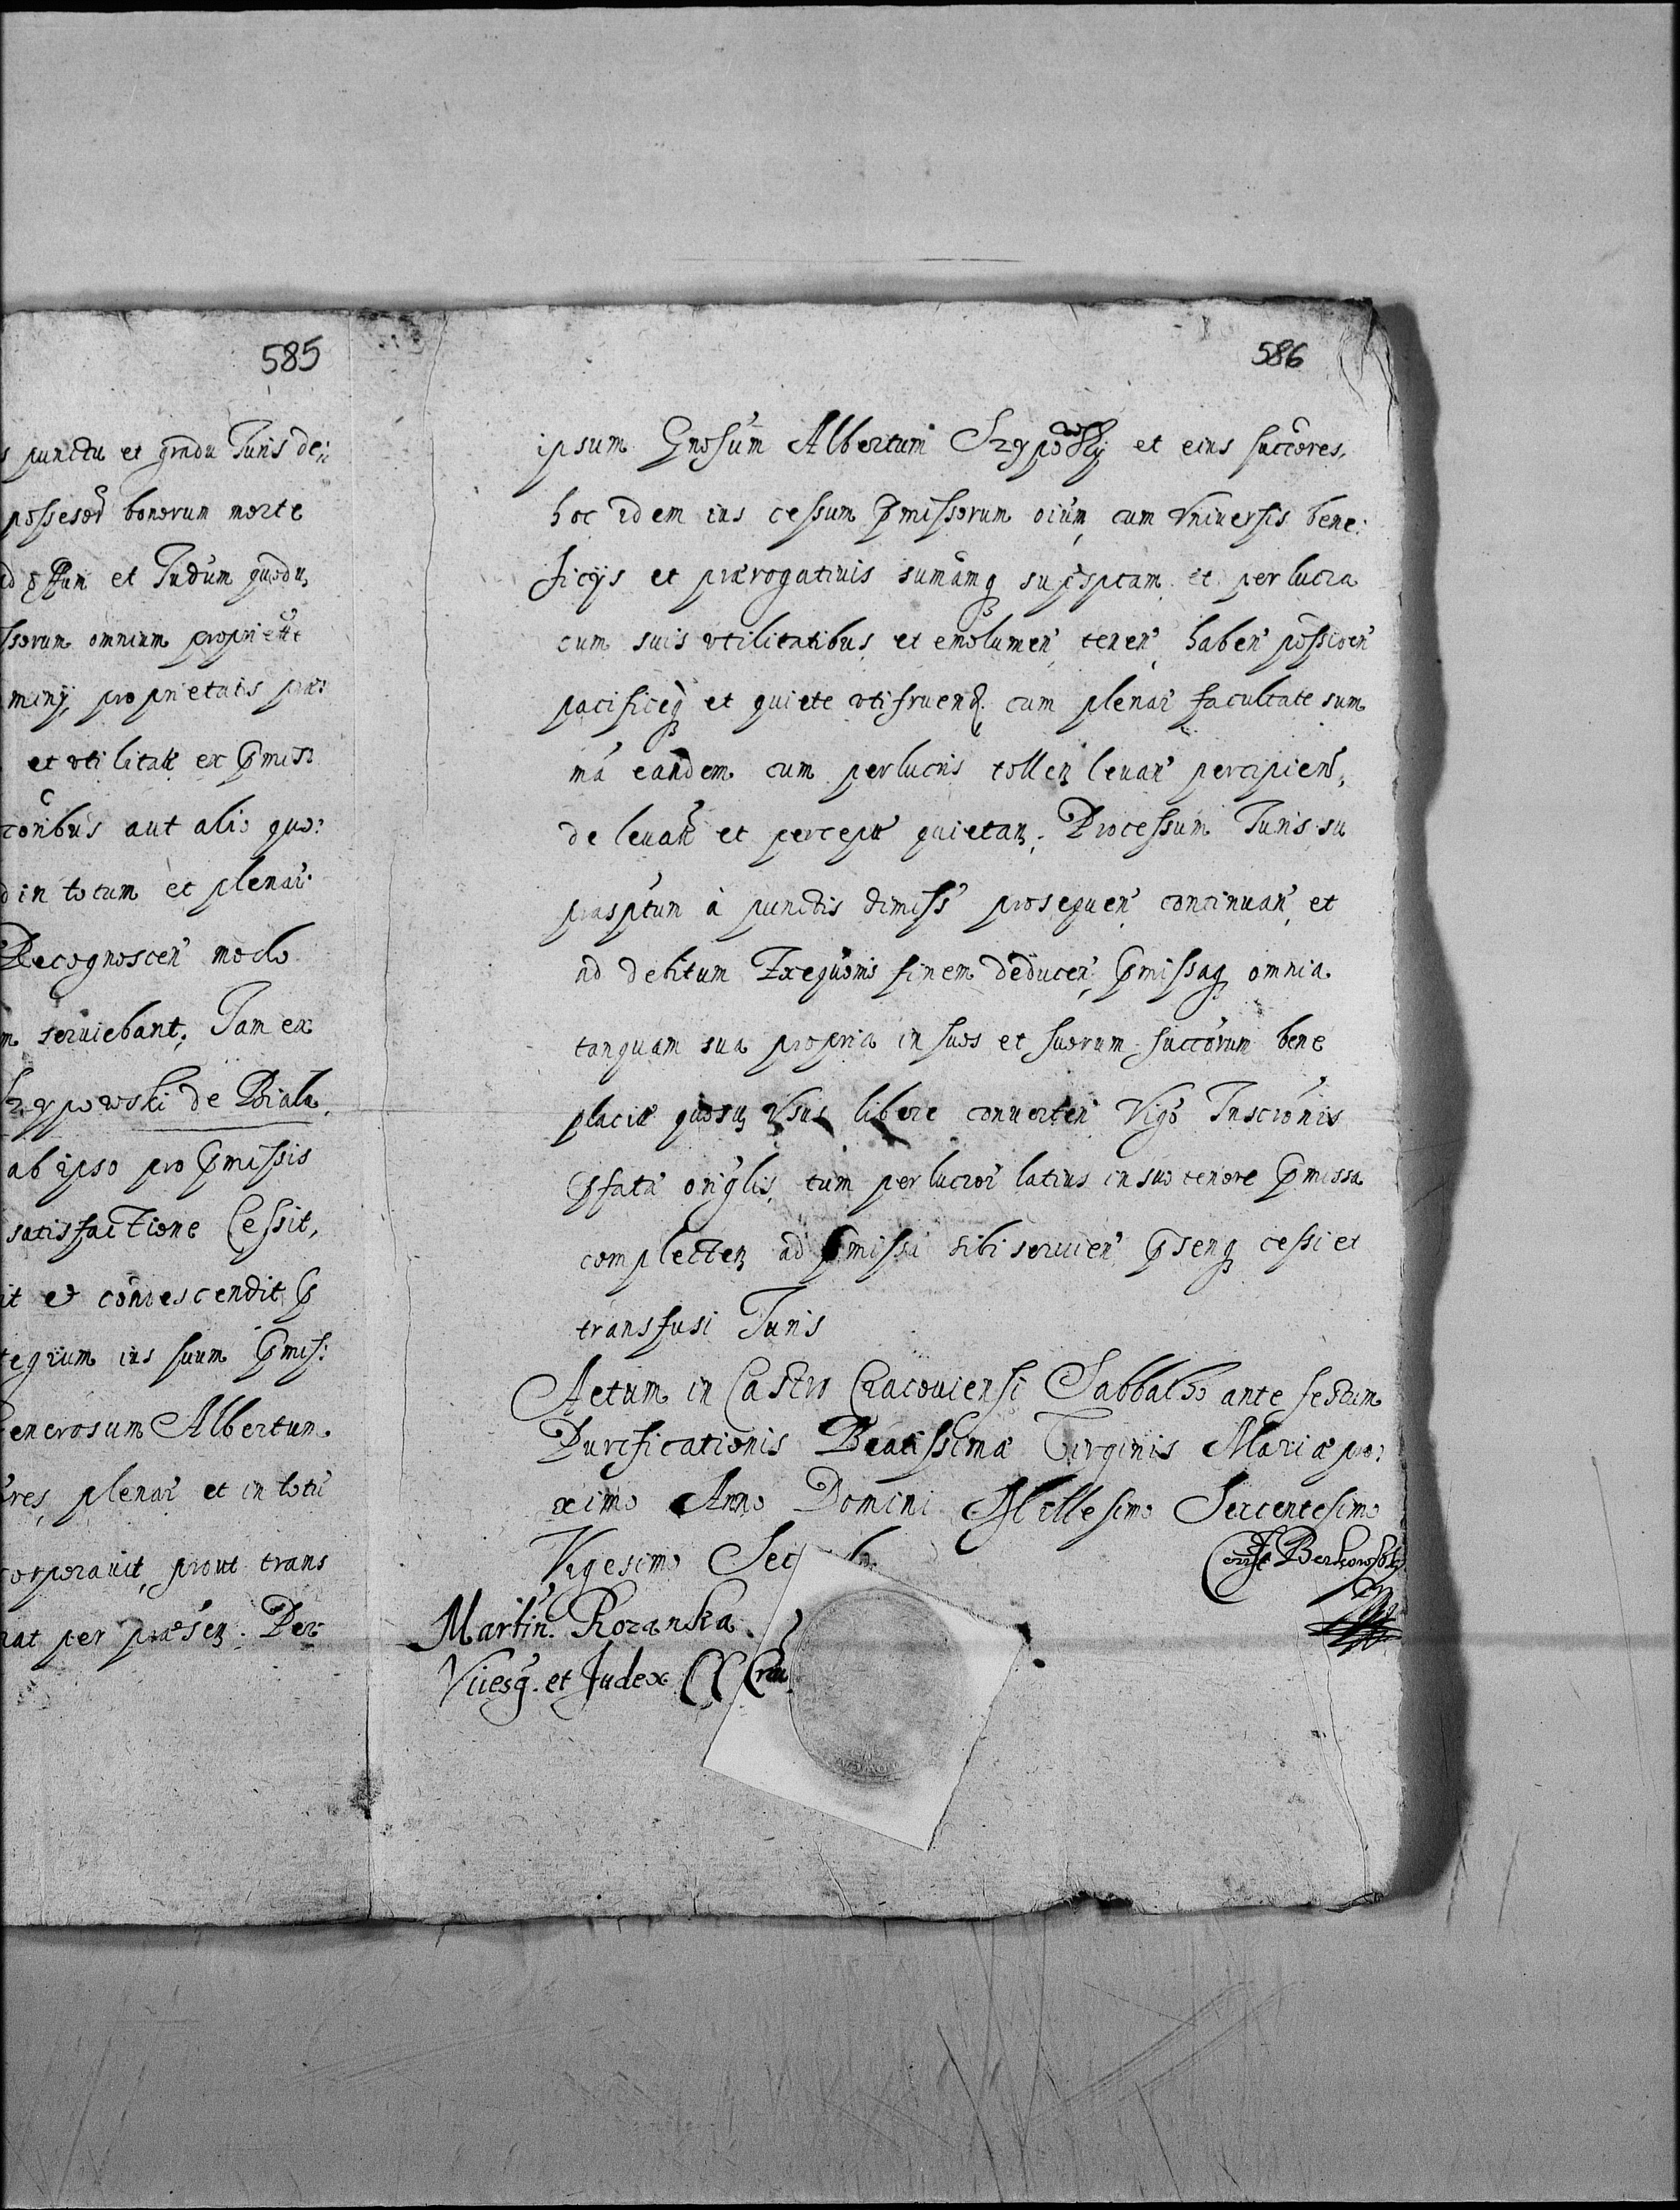 585
s punctu et gradu Juris de:
possesor bonorum morte
et Judum quodu
ssorum omnium propriett
minij, proprietatis præ:
et vtilitat ex pmis:
toribus aut alio quo:
d in totum et plenar
Recognoscen modo
m seruiebant. Jam ex
Szypowski de Biała
ab ipso pro pmissis
satisfactione Cessit,
it et condescendit p
tegrum ius suum pmis:
Generosum Albertum
res, plenar et in totu
corporauit, prout trans
nat per præsen. Per
586
ipsum Gnosum Albertum Szypowskÿ et eius succores,
hoc idem ius cessum pmissorum oium, cum vniuersis bene:
ficijs et prærogatiuis sumamq suprsptam et perlucra
cum suis vtilitatibus et emolumen, tenen, haben possiden
pacificeq et quiete vtifruend. cum plenar facultate sum
ma eandem cum perlucris tollen leuan percipien,
de leuat et percept quietan. Processum Juris su
prasptum à punctis dimiss prosequen continuan, et
ad debitum Exequonis finem deducen, pmissaq omnia
tanquam sua propria in suos et suorum succorum bene
placit quosuis Vsus libere conuerten Vigo Inscrionis
pfata origlis, tum perlucror latius in suo tenore pmissa
complecten ad pmissa sibi seruien psenq cessi et
transfusi Juris
Actum in Castro Cracouiensi Sabbatho ante festum
Purificationis Beatissimæ Virginis Mariæ pro:
ximo Anno Domini Millesimo Sexcentesimo
Vigesimo Sec
Corrt Berkowsky
Martin. Rozanka.
Vicesg. et Judex C Crac